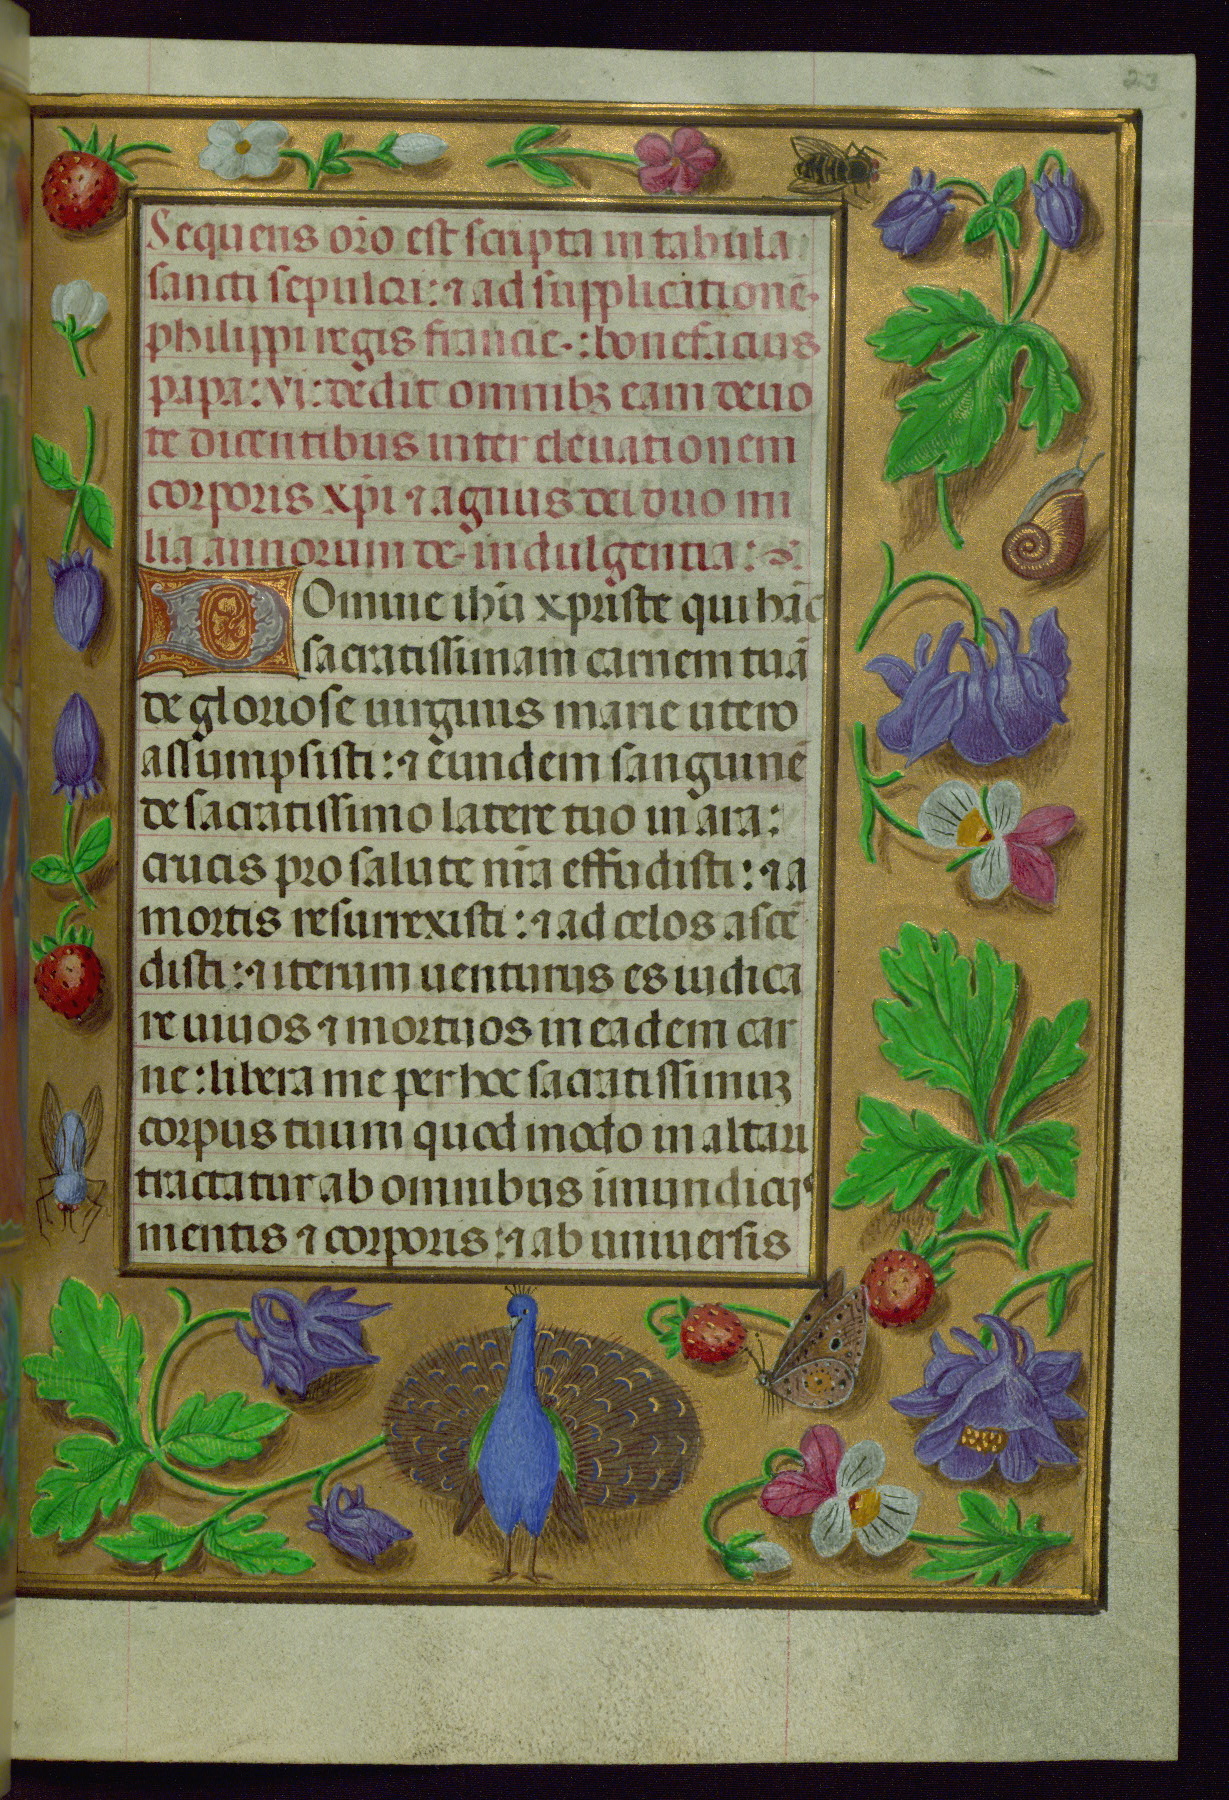 23
Sequens or̄o est scripta in tabula
sancti sepulcri: ⁊ ad supplicationē
philippi regis francie·: bonefacius
papa: vi: dedit omnibꝫ eam deuo
te dicentibus inter eleuationem
corporis xp̄i ⁊ agnus dei duo mi
lia annorum de indulgentia:
Domine ih̄u xpriste qui hāc
sacratissimam carnem tuā
de gloriose uirginis marie utero
assumpsisti: ⁊ eundem sanguinē
de sacratissimo latere tuo in ara:
crucis pro salute nr̄a effudisti: ⁊ a
mortis resurrexisti: ⁊ ad celos ascē
disti: ⁊ iterum uenturus es iudica
re uiuos ⁊ mortuos in eadem car
ne: libera me per hoc sacratissimuꝫ
corpus tuum quod modo in altari
tractatur ab omnibus īmundiciis
mentis ⁊ corporis: ⁊ ab uniuersis